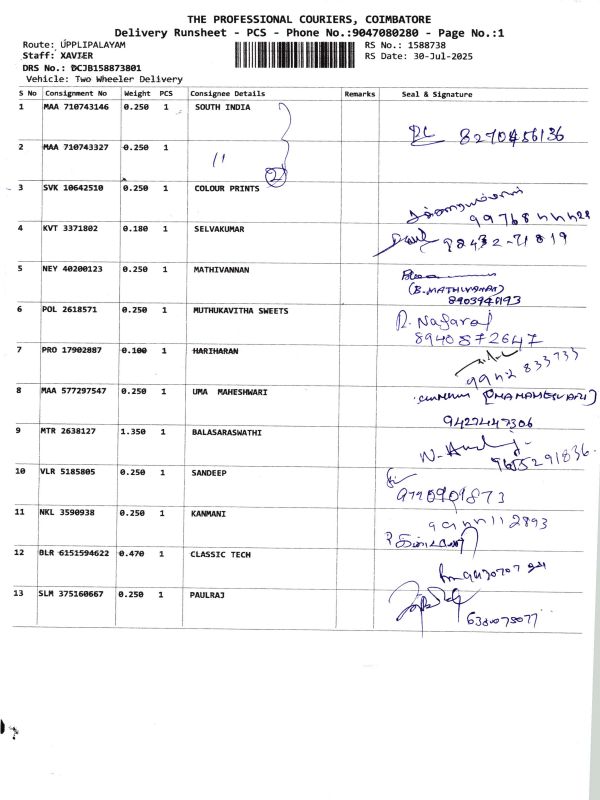 THE PROFESSIONAL COURIERS, COIMBATORE
Delivery Runsheet - PCS - Phone No.:9047080280 - Page No.:1
Route: UPPLIPALAYAM RS No.: 1588738
Staff: XAVIER RS Date: 30-Jul-2025
DRS No.: DCJB158873801
Vehicle: Two Wheeler Delivery
S No Consignment No Weight PCS Consignee Details Remarks Seal & Signature
1 MAA 710743146 0.250 1 SOUTH INDIA
8270456136
2 MAA 710743327 0.250 1 11
2
3 SVK 10642510 0.250 1 COLOUR PRINTS
4 KVT 3371802 0.180 1 SELVAKUMAR
98432-71819
5 NEY 40200123 0.250 1 MATHIVANNAN
(B.MATHIVANAN)
6 POL 2618571 0.250 1 MUTHUKAVITHA SWEETS R. Nagaraj
8940872647
7 PRO 17902887 0.100 1 HARIHARAN
8 MAA 577297547 0.250 1 UMA MAHESHWARI
9427447306
9 MTR 2638127 1.350 1 BALASARASWATHI
9655291836
10 VLR 5185805 0.250 1 SANDEEP
11 NKL 3590938 0.250 1 KANMANI
12 BLR 6151594622 0.470 1 CLASSIC TECH
13 SLM 375160667 0.250 1 PAULRAJ